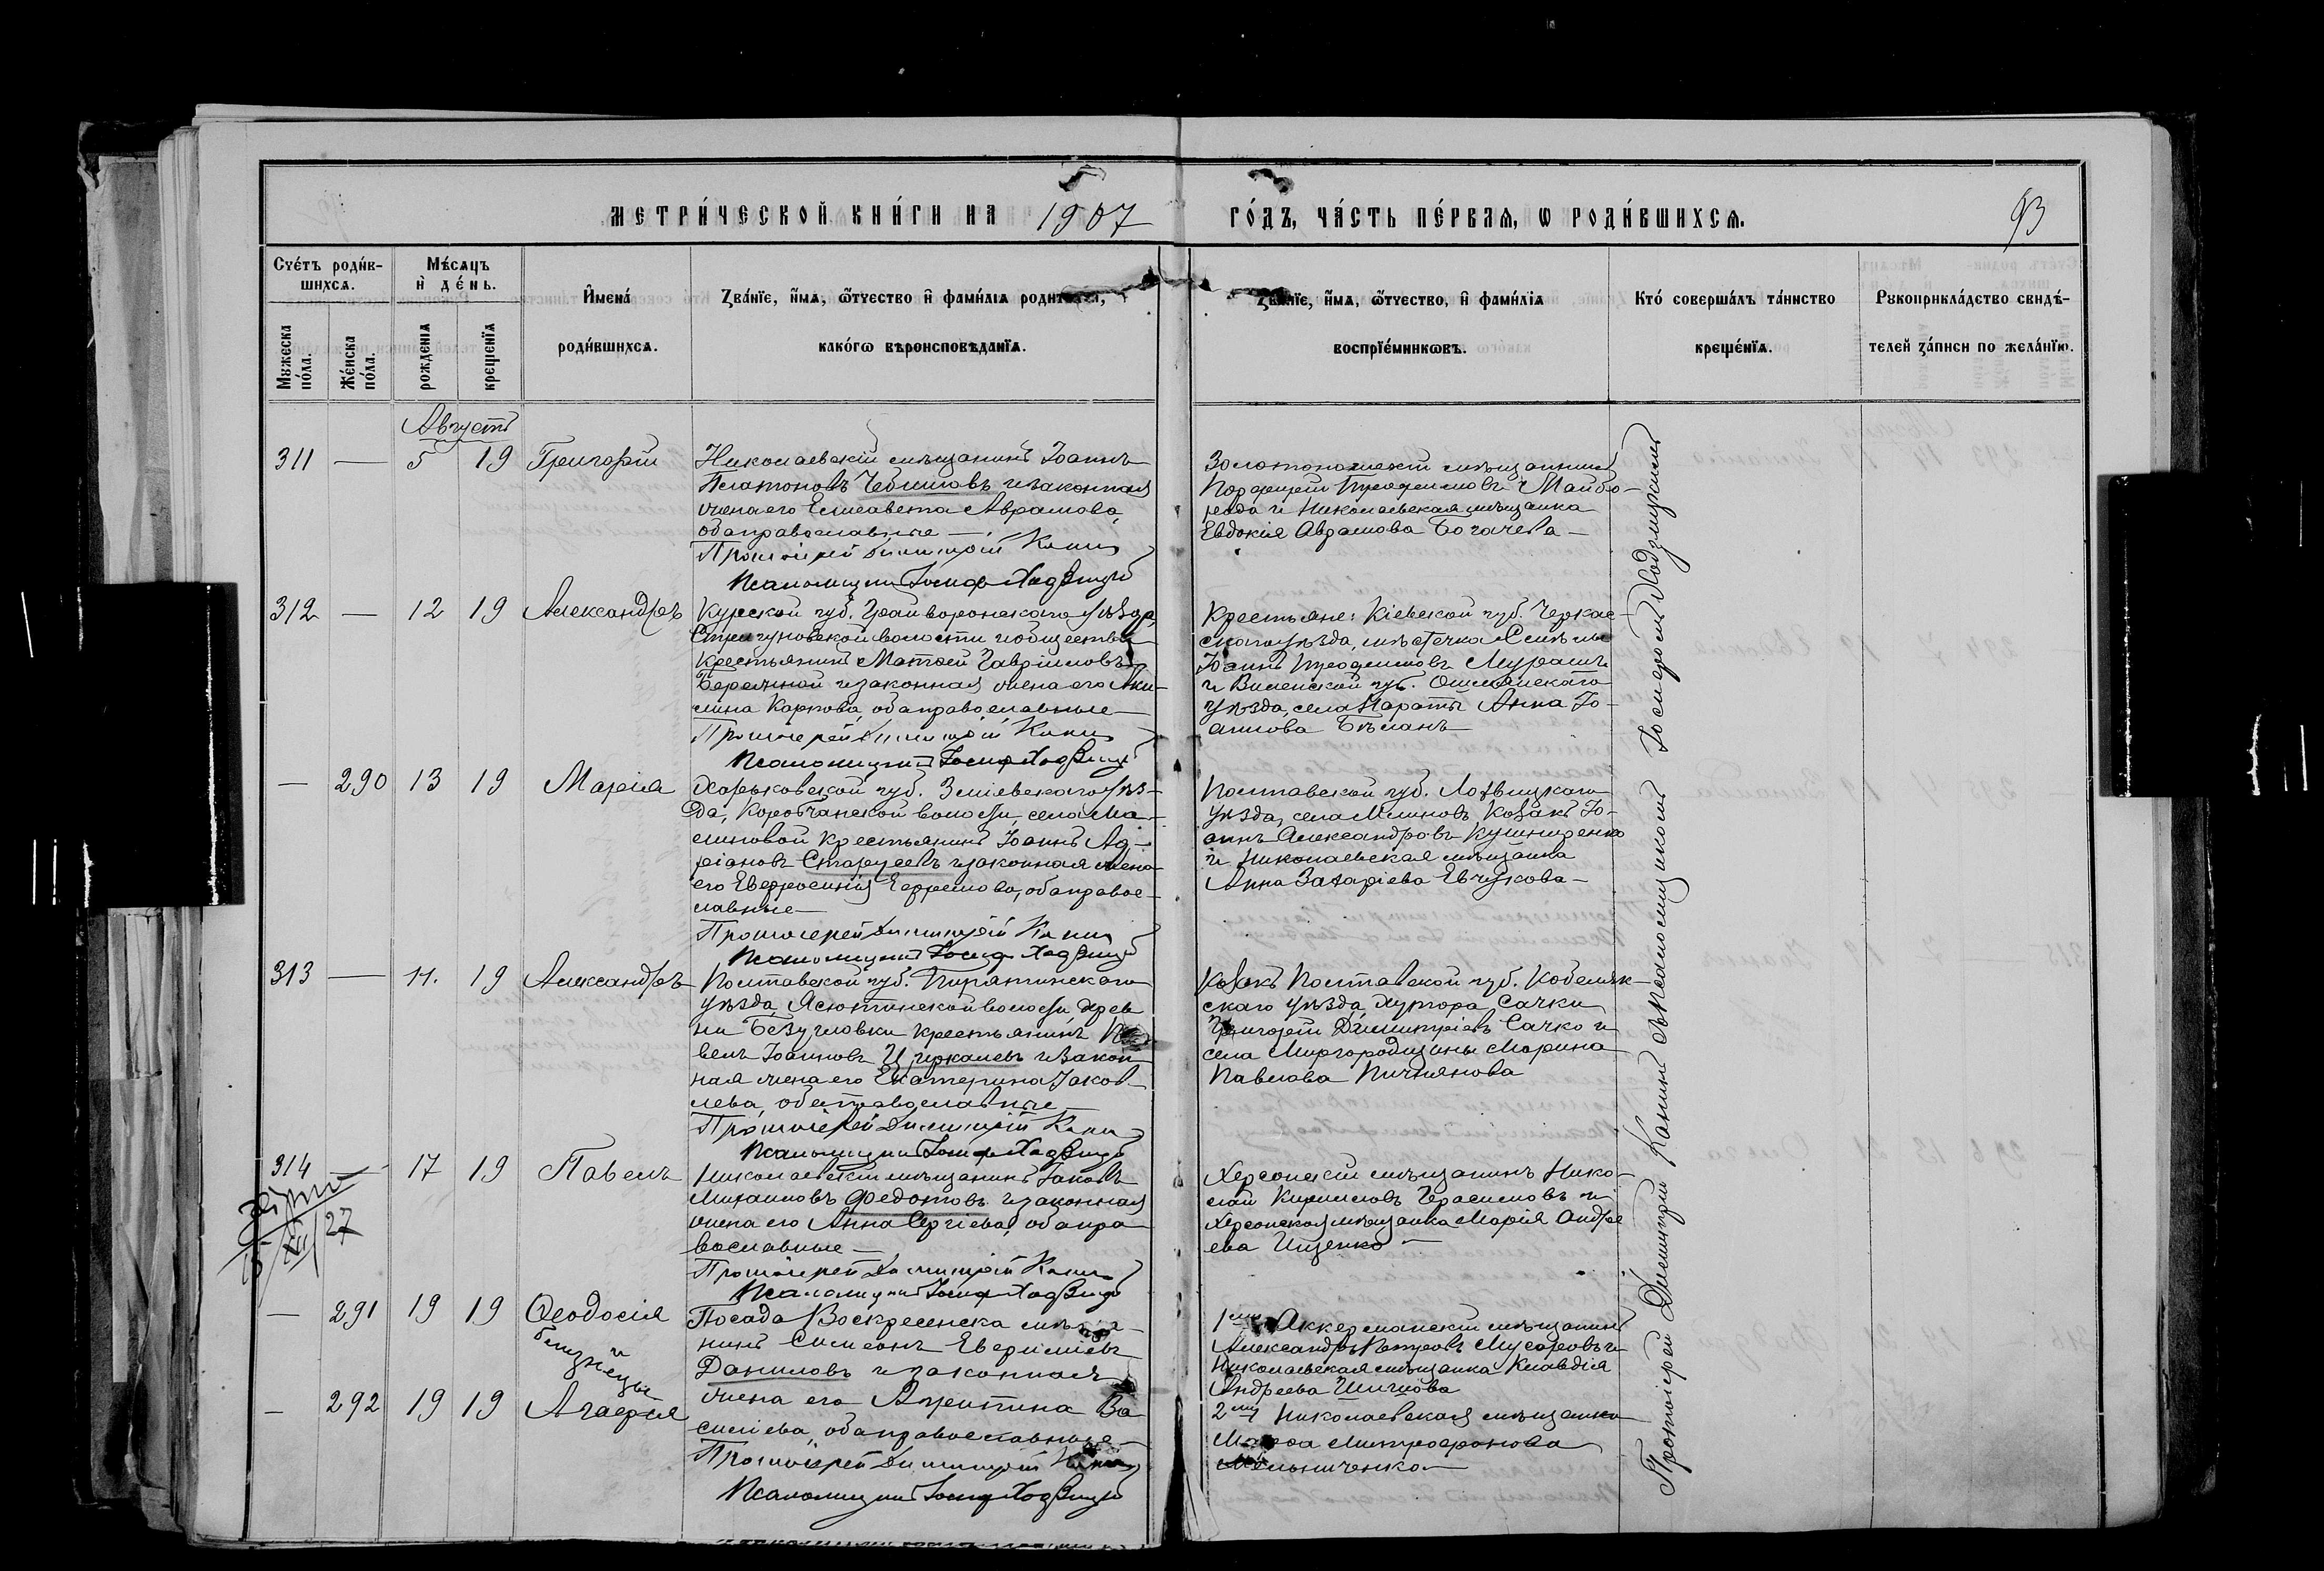 МЕТРИ́ЧЕСКОЙ КНИ́ГИ НА 1907 ГО́ДЪ, ЧА́СТЬ ПЕ́РВАѦ, Ѡ РОДИ́ВШИХСѦ.
93
Сче́тъ роди́в-
шихсѧ.
Мужеска по́ла.
Же́нска по́ла.
Мѣ́сѧцъ
и҆ де́нь.
рожденїѧ
крещенїѧ
И҆мена́
роди́вшихсѧ.
Зва́нїе, и҆́мѧ, ѻ҆́тчество и҆ фами́лїѧ родителей,
како́гѡ вѣроисповѣ́данїѧ.
Зва́нїе, и҆́мѧ, ѻ҆́тчество, и҆ фами́лїѧ
воспрїе́мникѡвъ.
Кто́ соверша́лъ та́инство
креще́нїѧ.
Рукоприкла́дство свидѣ́-
телей за́писи по жела́нїю.
Августъ
311 — 5 19 Григорій
Николаевскій мѣщанинъ Іоаннъ
Платоновъ Чебышовъ и законная
жена его Елисавета Аврамова,
оба православные —
Протоіерей Димитрій Канинъ
Псаломщикъ Іосифъ Ходзицкій
мѣщанинъ
и Николаевская мѣщанка
Евдокія Аврамова Богачева —
312 — 12 19 Александръ
Курской губ. Грайворонскаго уѣзда,
волости и общества
крестьянинъ Матѳей Гавріиловъ
Бережной и законная жена его Аки-
лина Карпова, оба православные —
Протоіерей Димитрій Канинъ
Псаломщикъ Іосифъ Ходзицкій
Крестьяне: Кіевской губ. Черкас-
скаго уѣзда, мѣстечка Смѣлы
Іоаннъ
и Виленской губ. Ошмянскаго
уѣзда, села Анна Іо-
аннова
— 290 13 19 Марія
Харьковской губ. Зміевскаго уѣз-
да, Коробчанской волости, села Ма-
линовой крестьянинъ Іоаннъ Ад-
ріановъ и законная жена
его Евфросинія Ефремова, оба право-
славные —
Протоіерей Димитрій Канинъ
Псаломщикъ Іосифъ Ходзицкій
Полтавской губ. Лохвицкаго
уѣзда, села Млиновъ козакъ Іо-
аннъ Александровъ Кушниренко
и Николаевская мѣщанка
Анна Захаріева Евчукова —
313 — 11. 19 Александръ
Полтавской губ. Пирятинскаго
уѣзда, волости дерев
ни Безугловки крестьянинъ Па
велъ Іоанновъ и закон
ная жена его Екатерина Яков
лева, оба православные —
Протоіерей Димитрій Канинъ
Псаломщикъ Іосифъ Ходзицкій
Козакъ Полтавской губ. Кобеляк-
скаго уѣзда, хутора Сачки
Григорій Димитріевъ Сачко и
села Миргородщины Марина
Павлова
314 — 17 19 Павелъ
27
Николаевскій мѣщанинъ Іаковъ
Михаиловъ Федотовъ и законная
жена его Анна Сергіева, оба пра
вославные —
Протоіерей Димитрій Канинъ
Псаломщикъ Іосифъ Ходзицкій
Херсонскій мѣщанинъ Нико-
лай Кирилловъ Герасимовъ и
Херсонская мѣщанка Марія Андре
ева Ищенко —
— 291 19 19 Ѳеодосія
и
близнецы
— 292 19 19 Агаѳія
Посада Воскресенска мѣща-
нинъ Симеонъ Евфиміевъ
Даниловъ и законная
жена его Ва
силіева, оба православные —
Протоіерей Димитрій Канинъ
Псаломщикъ Іосифъ Ходзицкій
1-й Аккерманскій мѣщанинъ
Александръ Петровъ и
Николаевская мѣщанка Клавдія
Андреева
2-й Николаевская мѣщанка
Митрофанова
Мельниченко —
Протоіерей Димитрій Канинъ съ псаломщикомъ Іосифомъ Ходзицкимъ